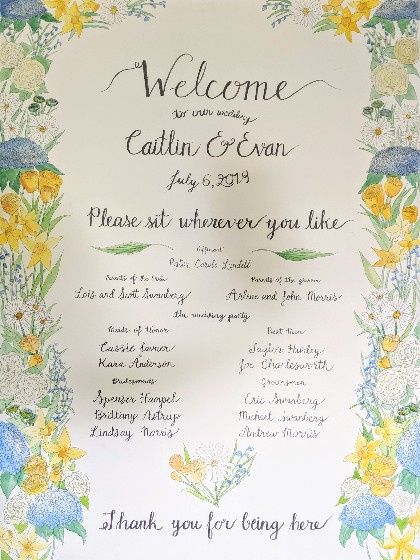 Welcome
to our wedding
Caitlin & Evan
July 6, 2019
Please sit wherever you like
Officiant
Pastor Carole Lendell
Parents of the Bride Parents of the groom
Lois and Scott Swanberg Arlene and John Morris
the wedding party
Maids of Honor Best Men
Cassie Joyner Taylor Hunley
Kara Anderson Joe Charlesworth
Bridesmaids Groomsmen
Spenser Hampel Eric Swanberg
Brittany Astrup Michael Swanberg
Lindsay Norris Andrew Morris
Thank you for being here